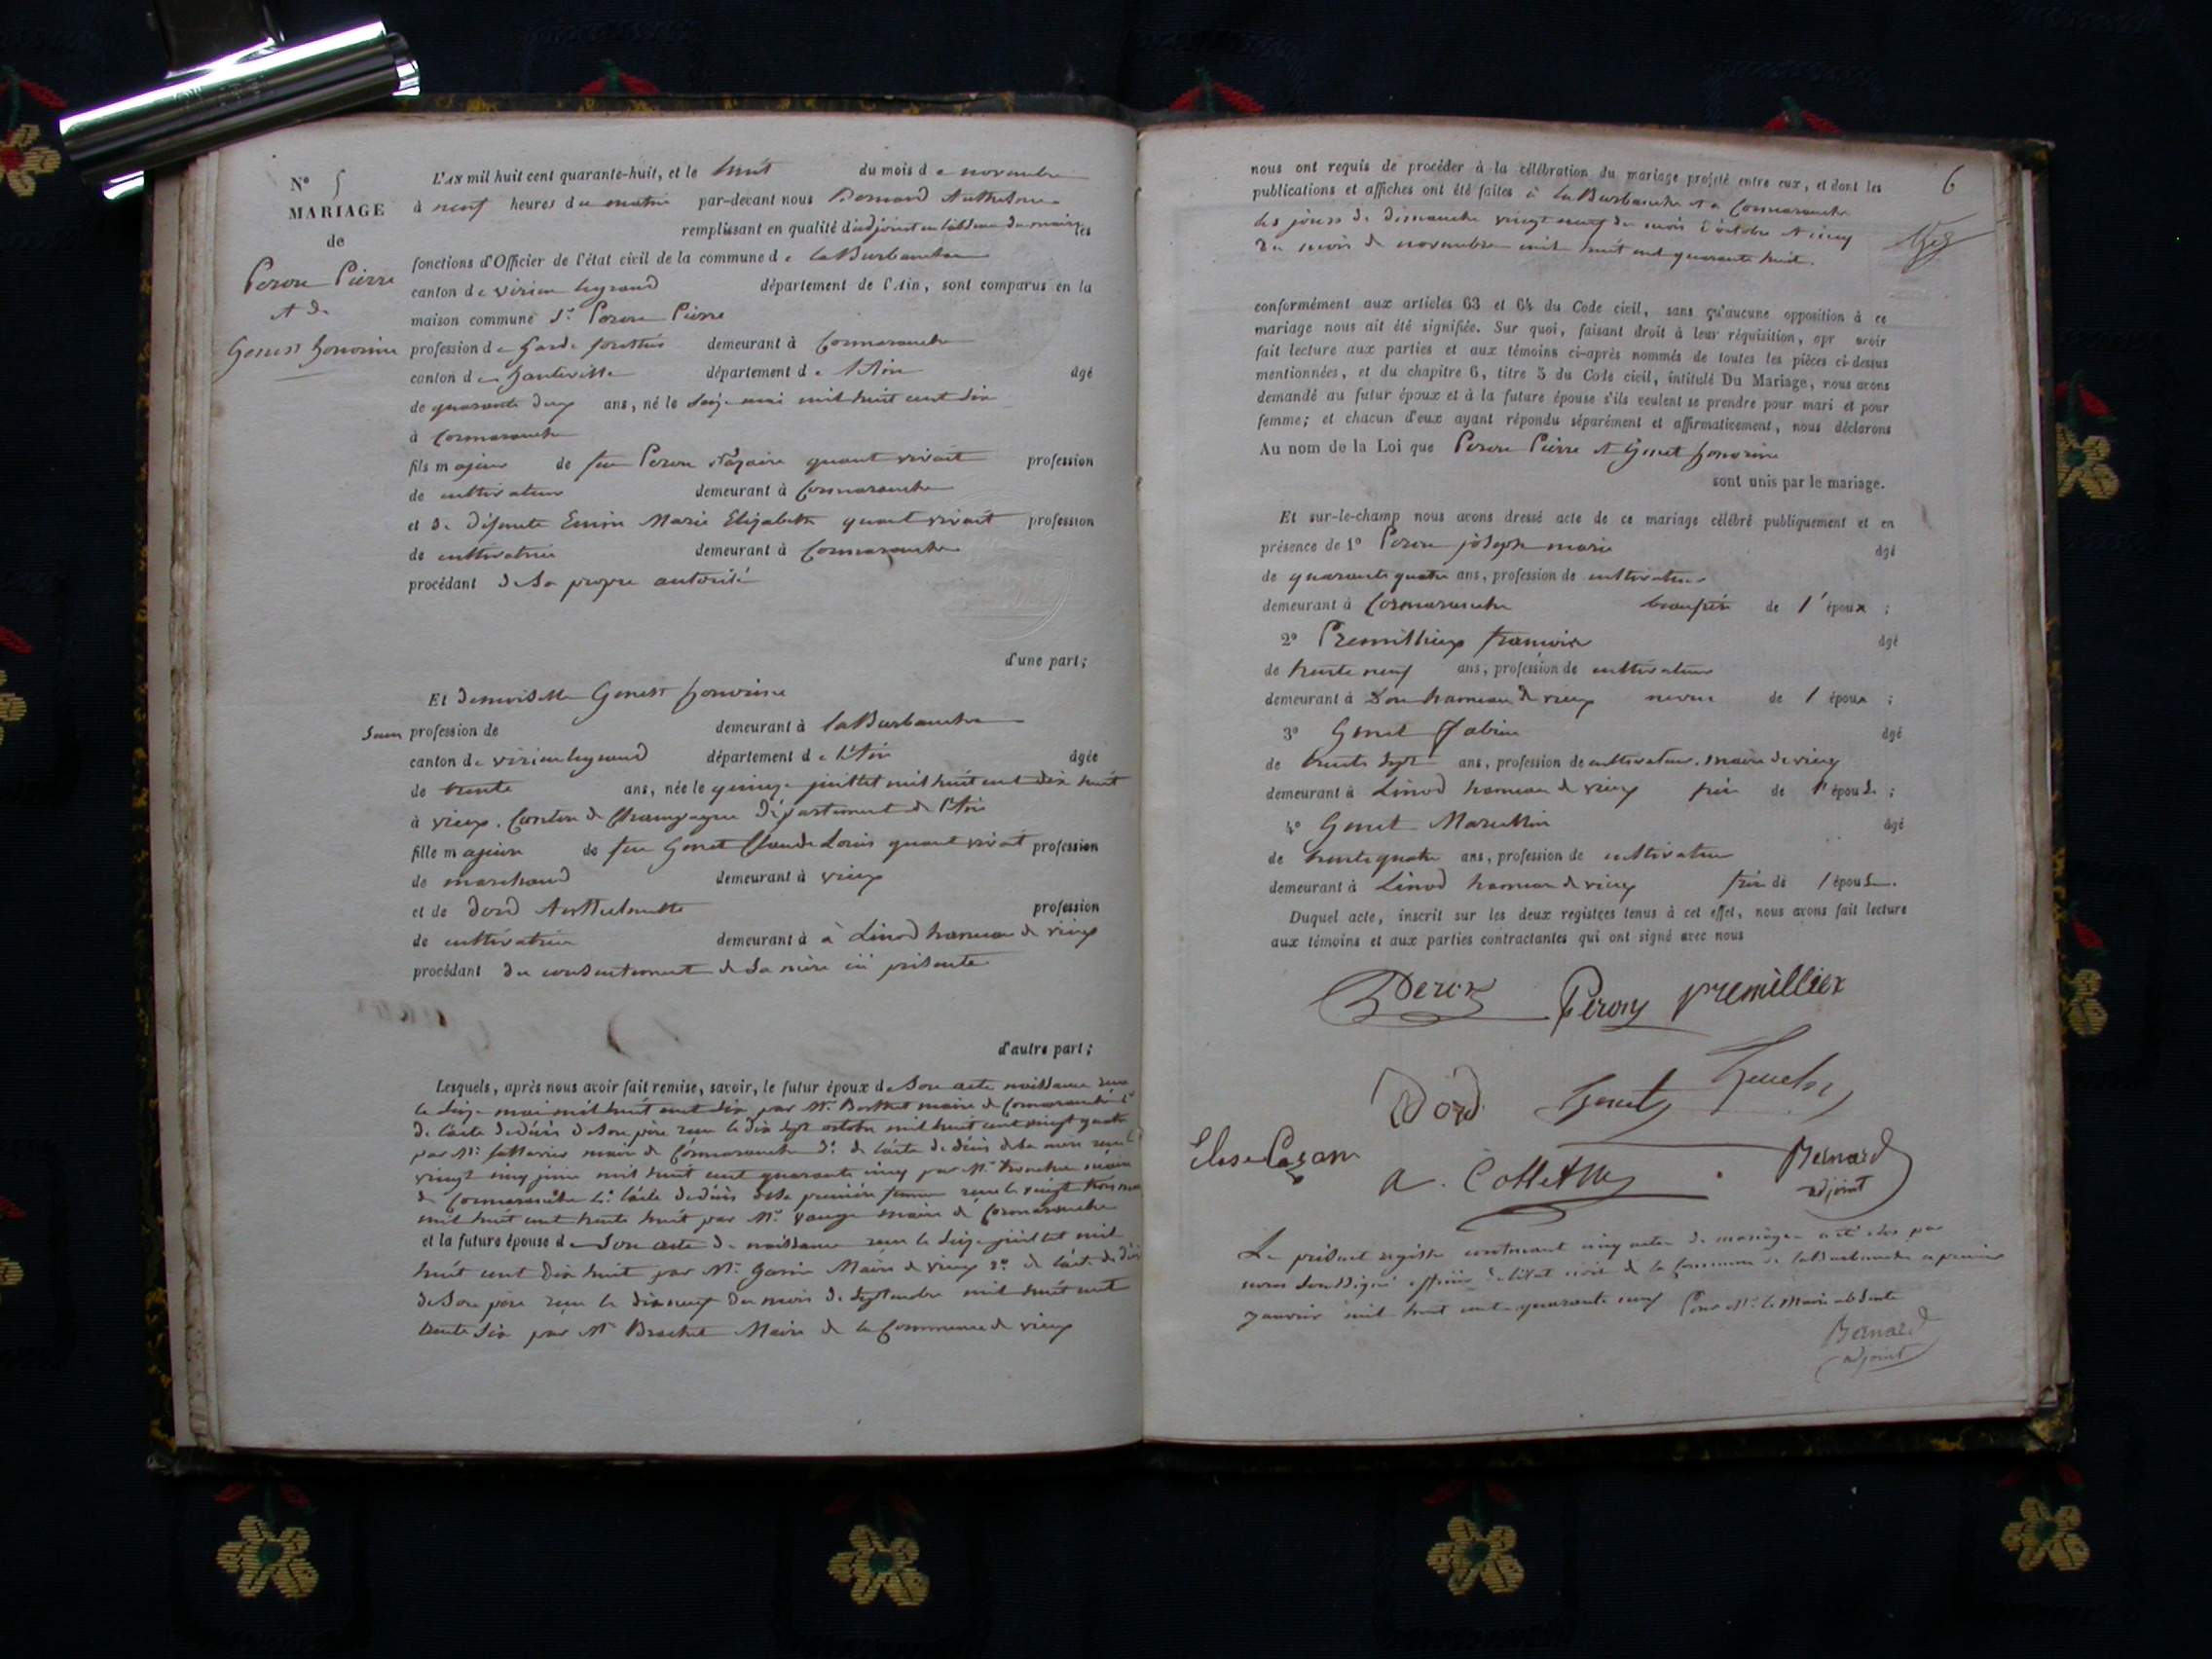 N° 5
MARIAGE
de
Peron Pierre
et de
Genest honorine
L'AN mil huit cent quarante-huit, et le huit du mois de novembre
à neuf heures du matin par-devant nous Bernard Anthelme
remplissant en qualité d'adjoint du maire les
fonctions d'Officier de l'état civil de la commune de laBurbanche
canton de virieu legrand département de l'Ain, sont comparus en la
maison commune Sr Peron Pierre
profession de Garde forestier demeurant à Cormaranche
canton de hauteville département de l'Ain âgé
de quarante deux ans, né le seize mai mil huit cent six
à Cormaranche
fils majeur de feu Peron Nazaire quant vivait profession
de cultivateur demeurant à Cormaranche
et de défunte Emin Marie Elizabeth quant vivait profession
de cultivatrice demeurant à Cormaranche
procédant de sa propre autorité
d'une part;
Et demoiselle Genest honorine
sans profession de demeurant à laBurbanche
canton de virieu legrand département de l'Ain âgée
de trente ans, née le quinze juillet mil huit cent dix huit
à vieux. Canton de Champagne Département de l'Ain
fille majeure de feu Genet Claude Louis quant vivait profession
de marchand demeurant à vieux
et de Dord Anthelmette profession
de cultivatrice demeurant à à Linod hameau de vieux
procédant du consentement de sa mère ici présente
d'autre part;
Lesquels, après nous avoir fait remise, savoir, le futur époux de son acte naissance reçu
le seize mai mil huit cent six par Mr. Berthet maire de Cormaranche
de l'acte de décès de son père reçu le dix sept octobre mil huit cent vingt quatre
par Mr. maire de Cormaranche de l'acte de décès de sa mère reçu
vingt cinq juin mil huit cent quarante cinq par Mr. maire
de Cormaranche l'acte de décès de sa première femme reçu le vingt trois
mil huit cent trente huit par Mr. maire de Cormaranche
et la future épouse de son acte de naissance reçu le seize juillet mil
huit cent dix huit par Mr. Garin Maire de vieux 2° de l'acte de décès
de son père reçu le dix neuf du mois de Septembre mil huit cent
trente six par Mr Brachet Maire de la Commune de vieux
6
nous ont requis de procéder à la célébration du mariage projeté entre eux, et dont les
publications et affiches ont été faites à laBurbanche et à Cormaranche
les jours de dimanche vingt neuf du mois d'octobre et cinq
du mois de novembre mil huit cent quarante huit.
conformément aux articles 63 et 64 du Code civil, sans qu'aucune opposition à ce
mariage nous ait été signifiée. Sur quoi, faisant droit à leur réquisition, apr avoir
fait lecture aux parties et aux témoins ci-après nommés de toutes les pièces ci-dessus
mentionnées, et du chapitre 6, titre 5 du Code civil, intitulé Du Mariage, nous avons
demandé au futur époux et à la future épouse s'ils veulent se prendre pour mari et pour
femme; et chacun d'eux ayant répondu séparément et affirmativement, nous déclarons
Au nom de la Loi que Peron Pierre et Genet honorine
sont unis par le mariage.
Et sur-le-champ nous avons dressé acte de ce mariage célébré publiquement et en
présence de 1° Peron joseph marie âgé
de quarante quatre ans, profession de cultivateur
demeurant à Cormaranche beaufrère de l'époux ;
2° Premillieux francois âgé
de trente neuf ans, profession de cultivateur
demeurant à Don hameau de vieux neveu de l époux ;
3° Genet fabien âgé
de trente sept ans, profession de cultivateur. maire de vieux
demeurant à Linod hameau de vieux frère de l'épouse ;
4° Genet Marcellin âgé
de trente quatre ans, profession de cultivateur
demeurant à Linod hameau de vieux frère de l épouse.
Duquel acte, inscrit sur les deux registres tenus à cet effet, nous avons fait lecture
aux témoins et aux parties contractantes qui ont signé avec nous
Peron Peron premilliex
Dord Genet
Elise a. Collet Bernard
adjoint
Le présent registre contenant cinq actes de mariage a été clos par
nous soussigné officier de l'état civil de la Commune de laBurbanche ce premier
janvier mil huit cent quarante neuf Pour Mr. le Maire absent
Bernard
adjoint